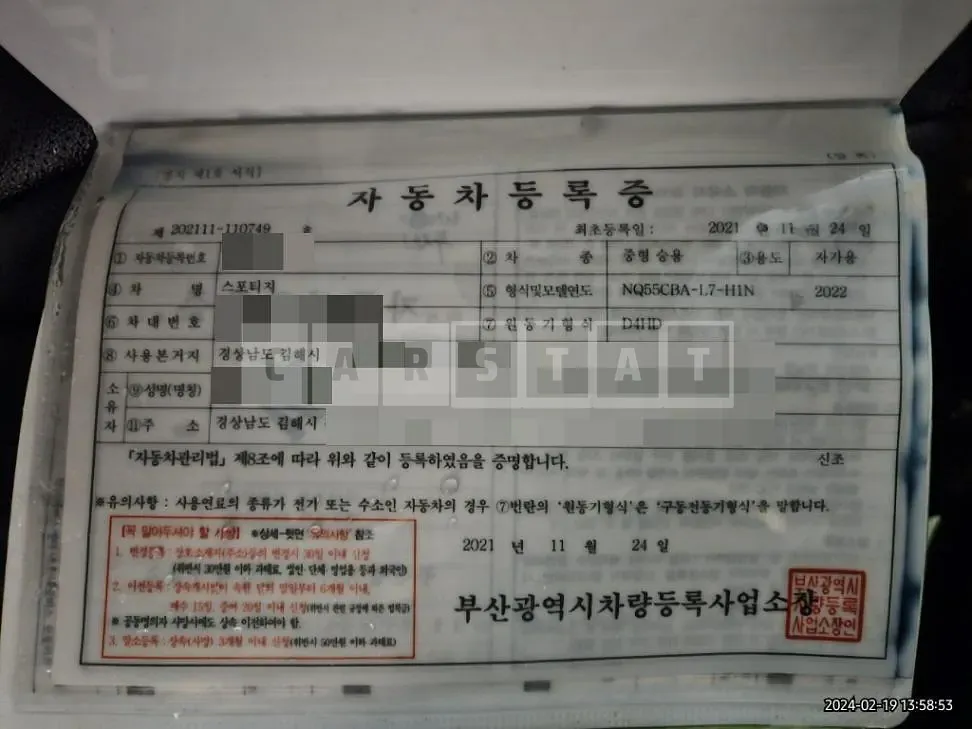 자동차등록증
제 202111-110749 호 최초등록일 : 2021 년 11 월 24 일
① 자동차등록번호 ② 차 종 중형 승용 ③용도 자가용
④ 차 명 스포티지 ⑤ 형식및모델연도 NQ55CBA-L7-H1N 2022
⑥ 차대번호 ⑦ 원동기형식 D4HD
⑧ 사용본거지 경상남도 김해시
CARSTAT
소유자 ⑨성명(명칭)
⑪주 소 경상남도 김해시
「자동차관리법」 제8조에 따라 위와 같이 등록하였음을 증명합니다. 신조
※유의사항 : 사용연료의 종류가 전기 또는 수소인 자동차의 경우 ⑦번란의 '원동기형식'은 '구동전동기형식'을 말합니다.
[꼭 알아두셔야 할 사항] ※상세-뒷면 "유의사항" 참조
1. 변경등록 : 상호소재지(주소)등의 변경시 30일 이내 신청
(위반시 30만원 이하 과태료, 법인·단체·영업용 등과 외국인)
2. 이전등록 : 상속개시일이 속한 달의 말일부터 6개월 이내,
매수 15일, 증여 20일 이내 신청(위반시 관련 규정에 따른 범칙금)
※ 공동명의자 사망시에도 상속 이전하여야 함.
3. 말소등록 : 상속(사망) 3개월 이내 신청(위반시 50만원 이하 과태료)
2021 년 11 월 24 일
부산광역시차량등록사업소장
부산광역시
차량등록
사업소장인
2024-02-19 13:58:53